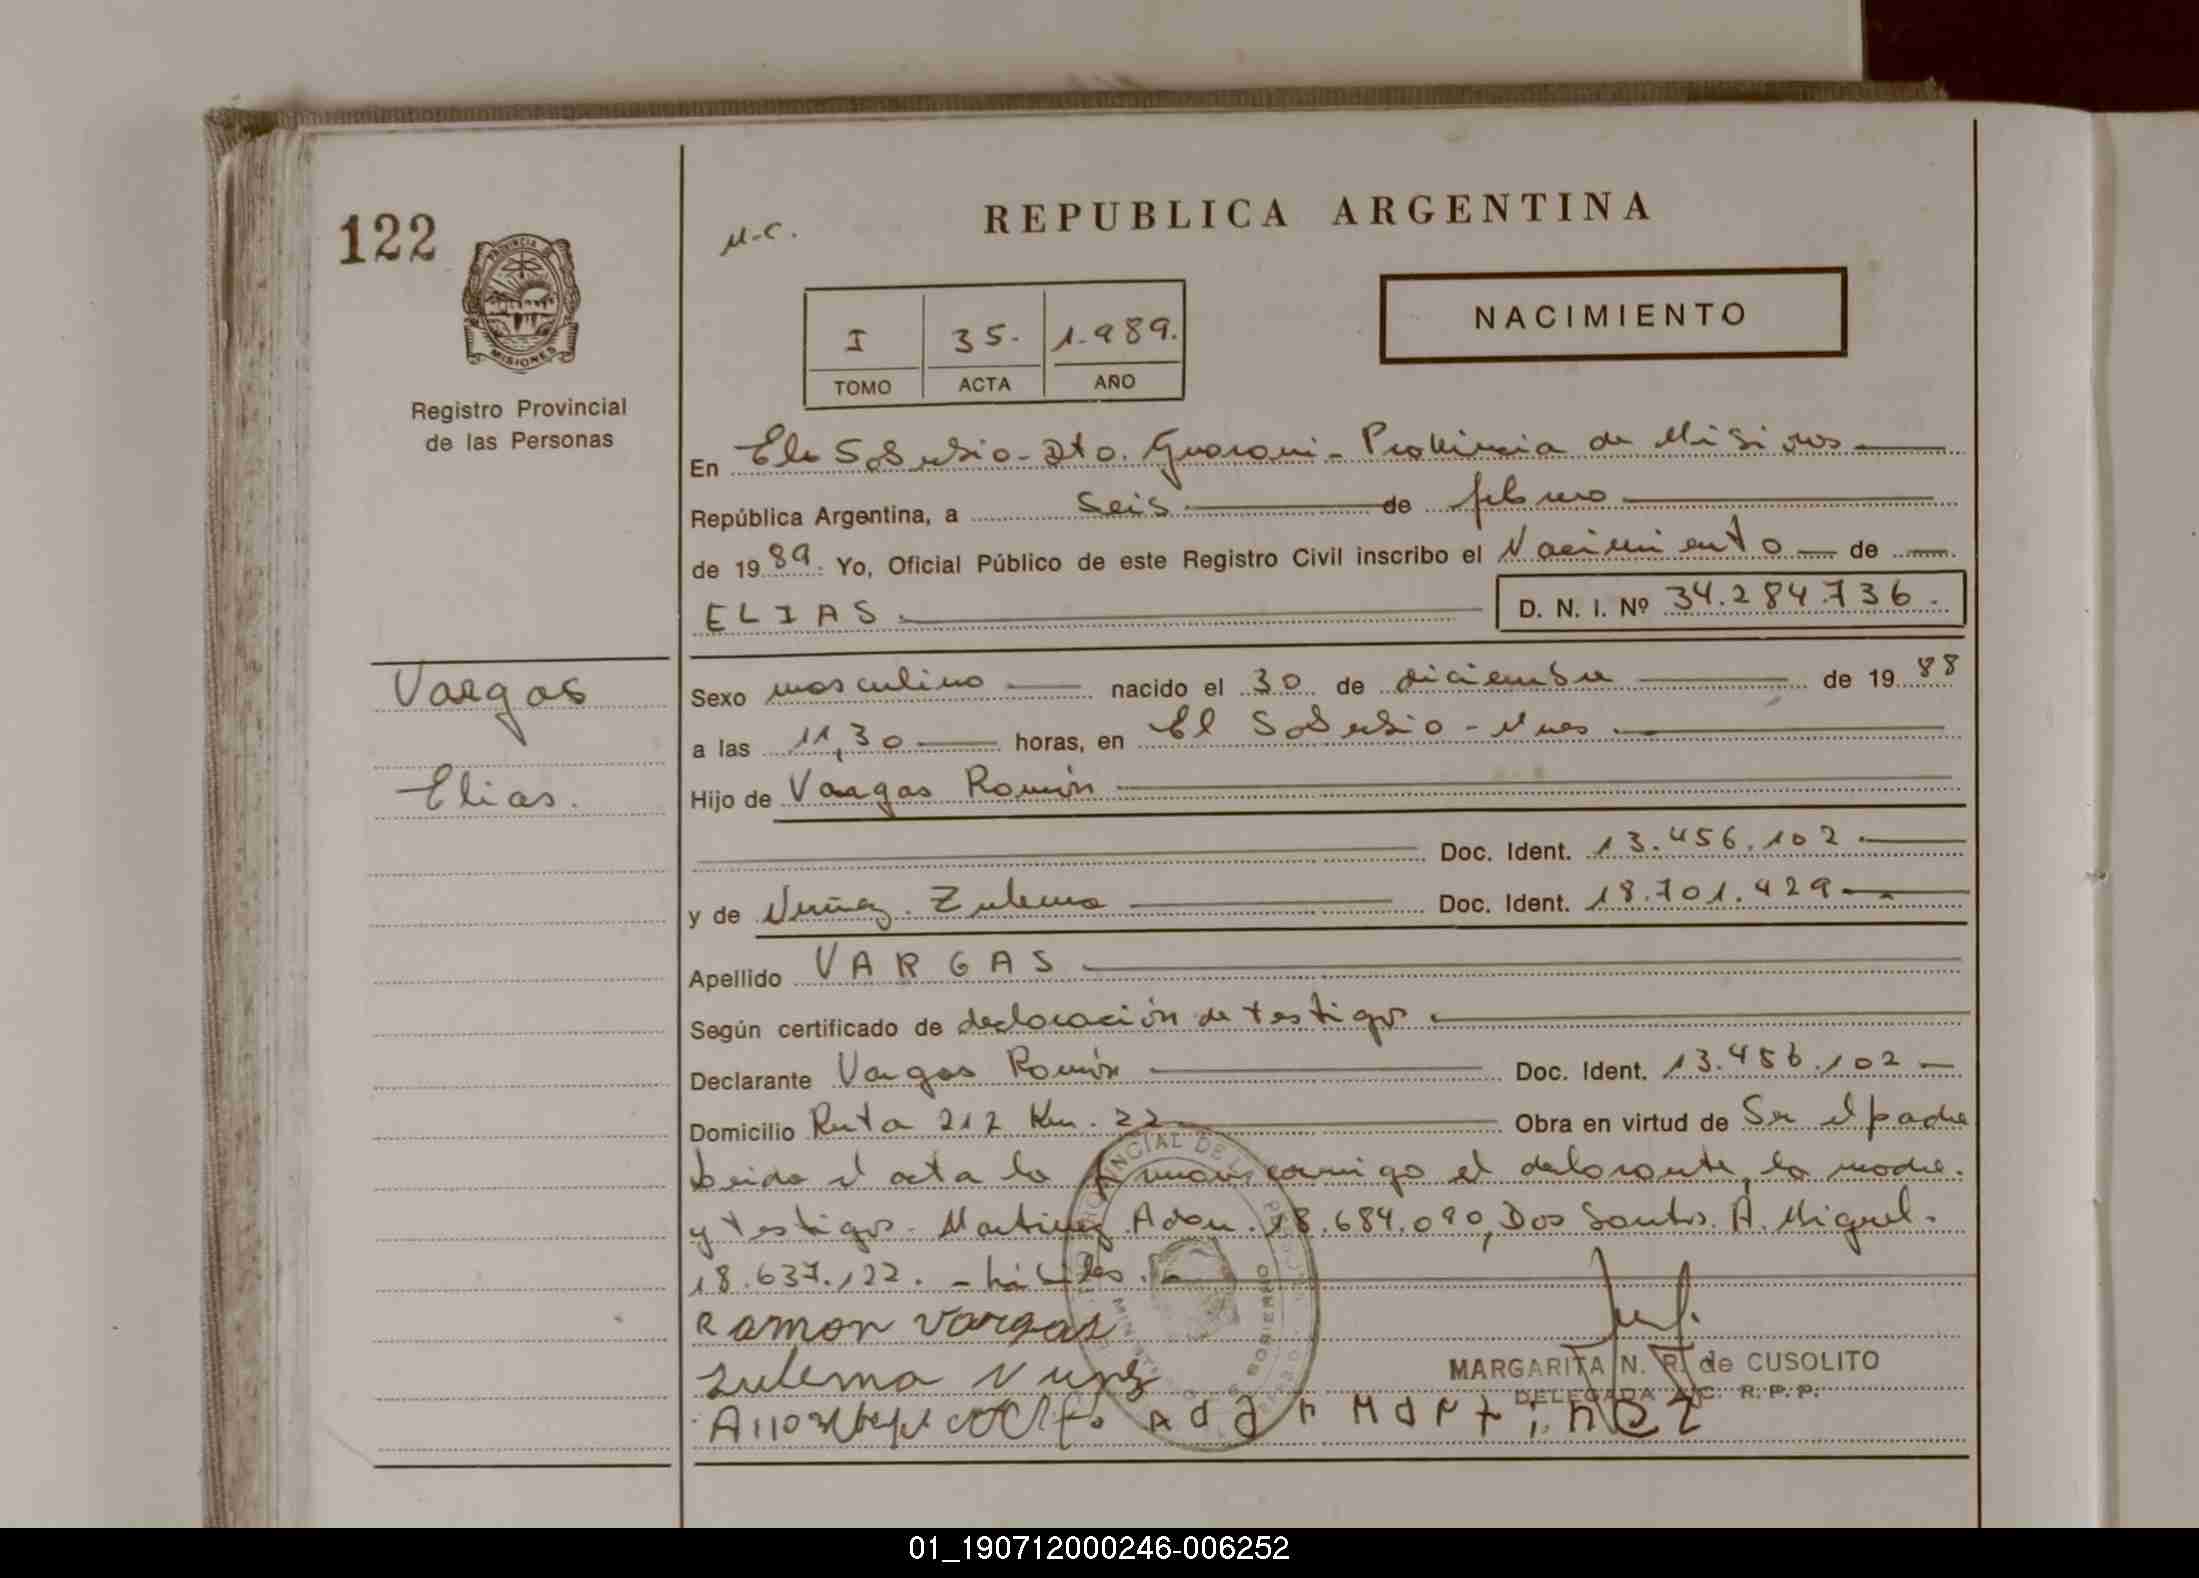 122
PROVINCIA DE
MISIONES
Registro Provincial
de las Personas
M-C.
REPUBLICA ARGENTINA
I 35. 1.989.
TOMO ACTA AÑO
NACIMIENTO
En El Soberbio - Dto. Guarani - Provincia de Misiones
República Argentina, a seis de febrero
de 1989. Yo, Oficial Público de este Registro Civil inscribo el Nacimiento de
ELIAS D. N. I. Nº 34.284.736.
Vargas
Elias.
Sexo masculino nacido el 30 de diciembre de 1988
a las 11,30 horas, en El Soberbio - Mnes
Hijo de Vargas Ramón
Doc. Ident. 13.456.102
y de Nuñez. Zulema Doc. Ident. 18.701.429
Apellido VARGAS
Según certificado de declaración de testigos
Declarante Vargas Ramón Doc. Ident. 13.456.102
Domicilio Ruta 212 Km. 22 Obra en virtud de Ser el padre
Leida el acta la firman conmigo el declarante, la madre.
y testigos. Martinez Adan. 18.684.090, Dos Santos. A. Miguel.
18.637.122. - hábiles.
Ramon Vargas
Zulema Nunez
MARGARITA N. R. de CUSOLITO
DELEGADA A/C. R. P. P.
Adan Martinez
01_190712000246-006252